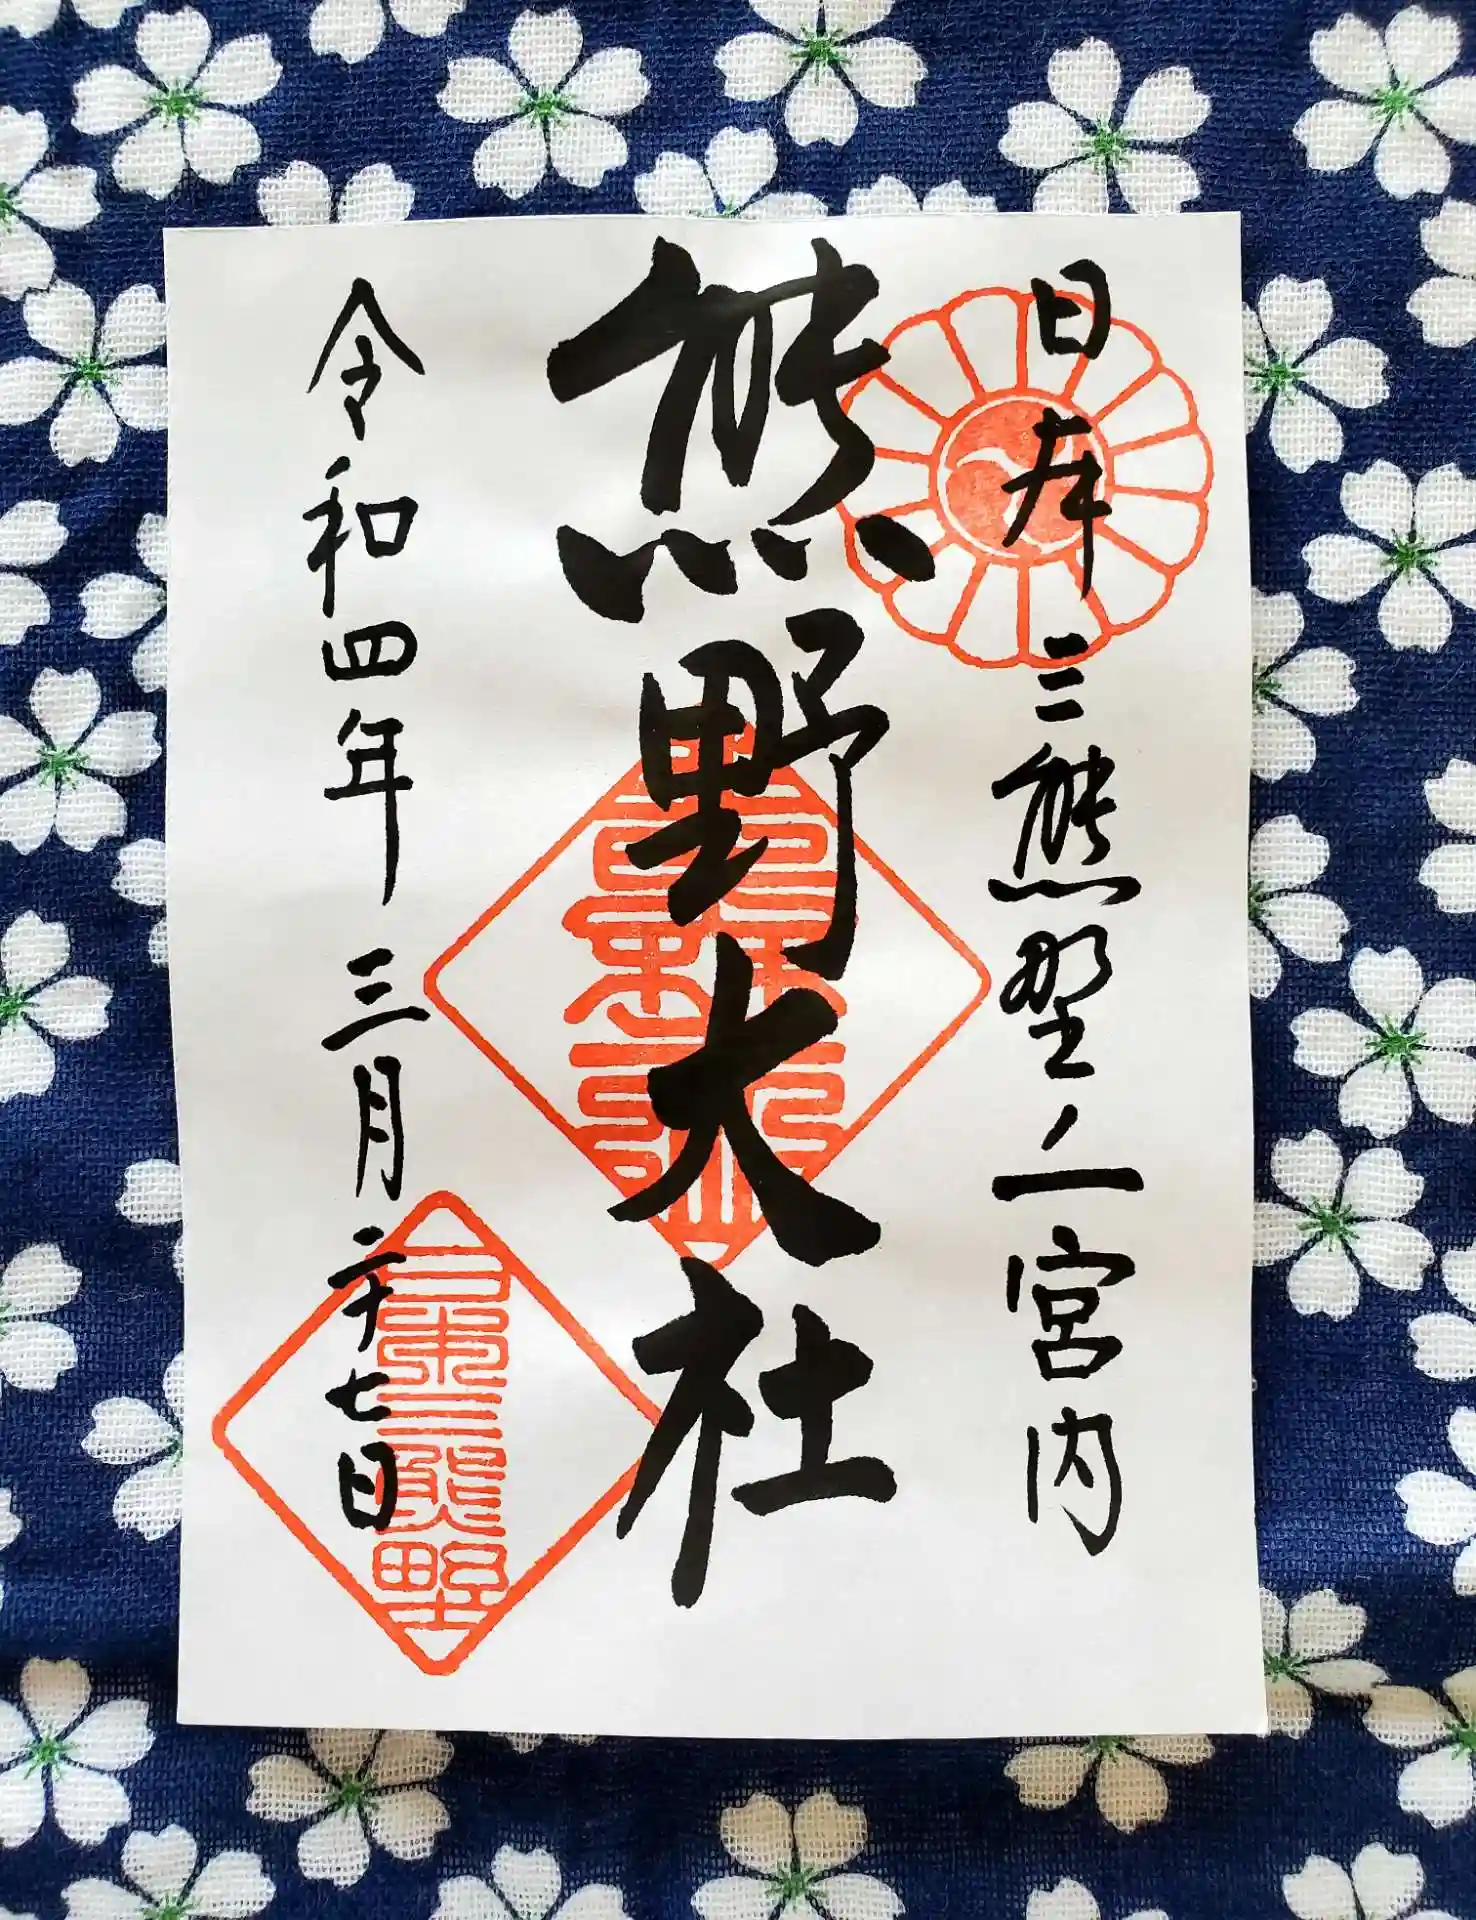 日本三熊野之一宮内
熊野大社
令和四年三月二十七日
日本三熊野